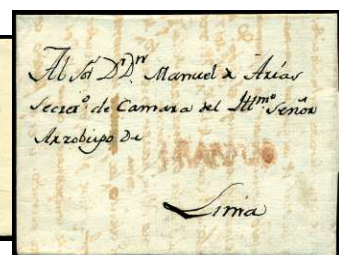 Al Sor. Dr. Dn. Manuel de Arias
Secreto. de Camara del Illmo. Señor
Arzobispo De
FRANCO
Lima